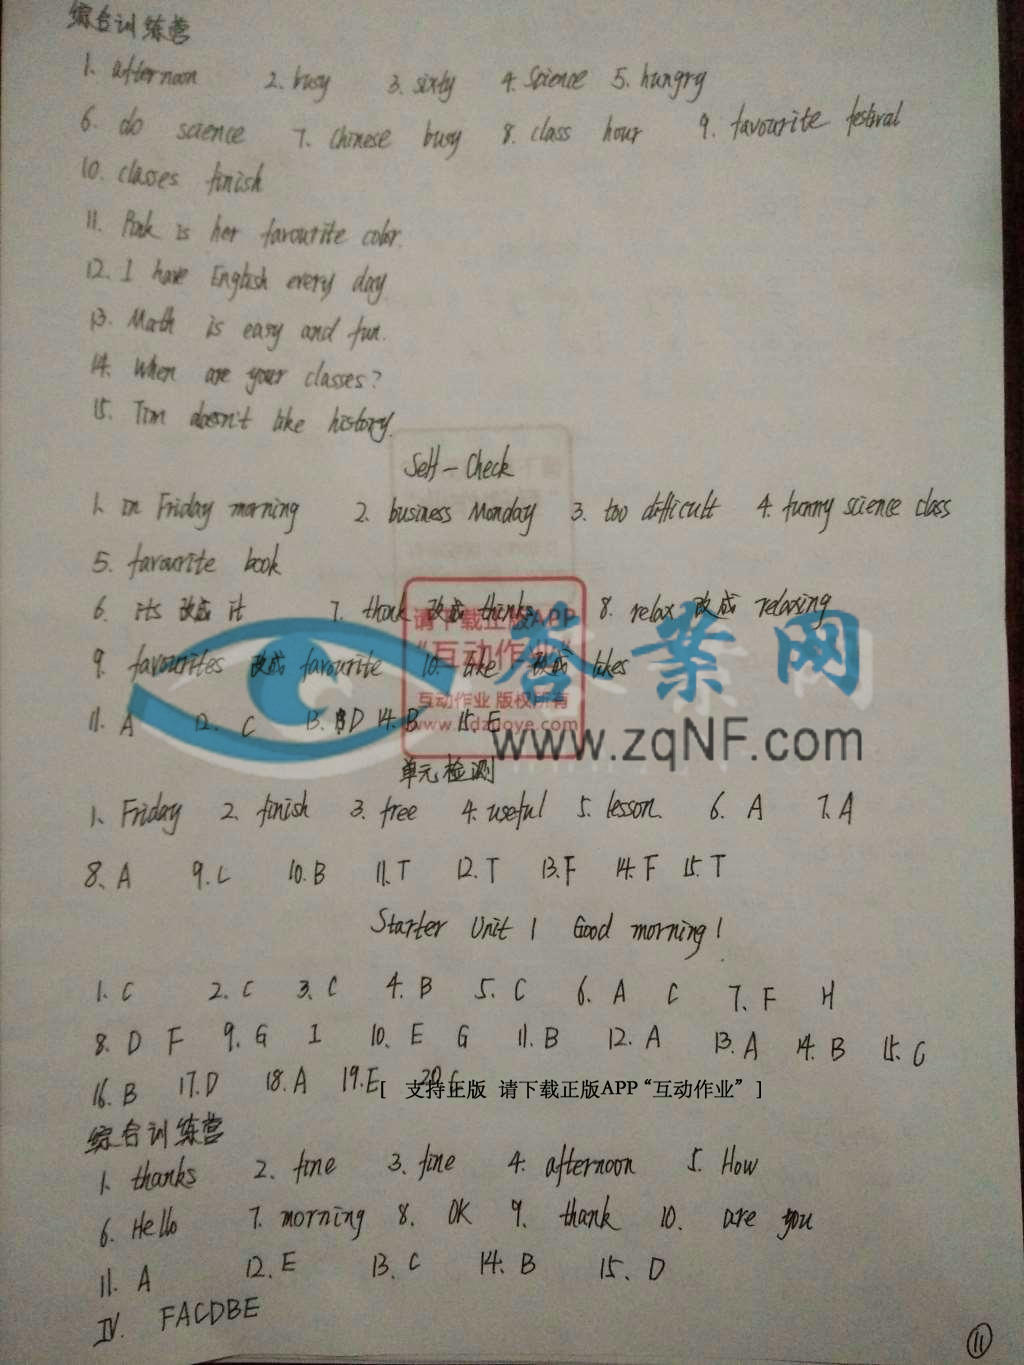 综合训练营
1. afternoon 2. busy 3. sixty 4. Science 5. hungry
6. do science 7. Chinese busy 8. class hour 9. favourite festival
10. classes finish
11. Pink is her favourite color.
12. I have English every day.
13. Math is easy and fun.
14. When are your classes?
15. Tim doesn't like history.
Self-Check
1. in Friday morning 2. business Monday 3. too difficult 4. funny science class
5. favourite book
6. its 改成 it 7. thank 改成 thanks 8. relax 改成 relaxing
9. favourites 改成 favourite 10. like 改成 likes
11. A 12. C 13. D 14. B 15. E
请下载正版APP
“互动作业”
互动作业 版权所有
答案网
www.zqNF.com
单元检测
1. Friday 2. finish 3. free 4. useful 5. lesson 6. A 7. A
8. A 9. C 10. B 11. T 12. T 13. F 14. F 15. T
Starter Unit 1 Good morning!
1. C 2. C 3. C 4. B 5. C 6. A C 7. F H
8. D F 9. G I 10. E G 11. B 12. A 13. A 14. B 15. C
16. B 17. D 18. A 19. E 20. C
[ 支持正版 请下载正版APP “互动作业” ]
综合训练营
1. thanks 2. fine 3. fine 4. afternoon 5. How
6. Hello 7. morning 8. OK 9. thank 10. are you
11. A 12. E 13. C 14. B 15. D
IV. FACDBE
11